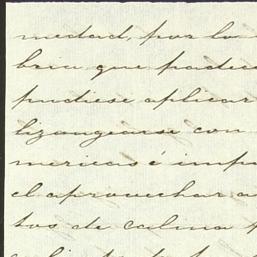 medad, por la
bria que padece
pudiese aplicar
lizongearse con
mericas é impo
el aprovechar
tos de calma